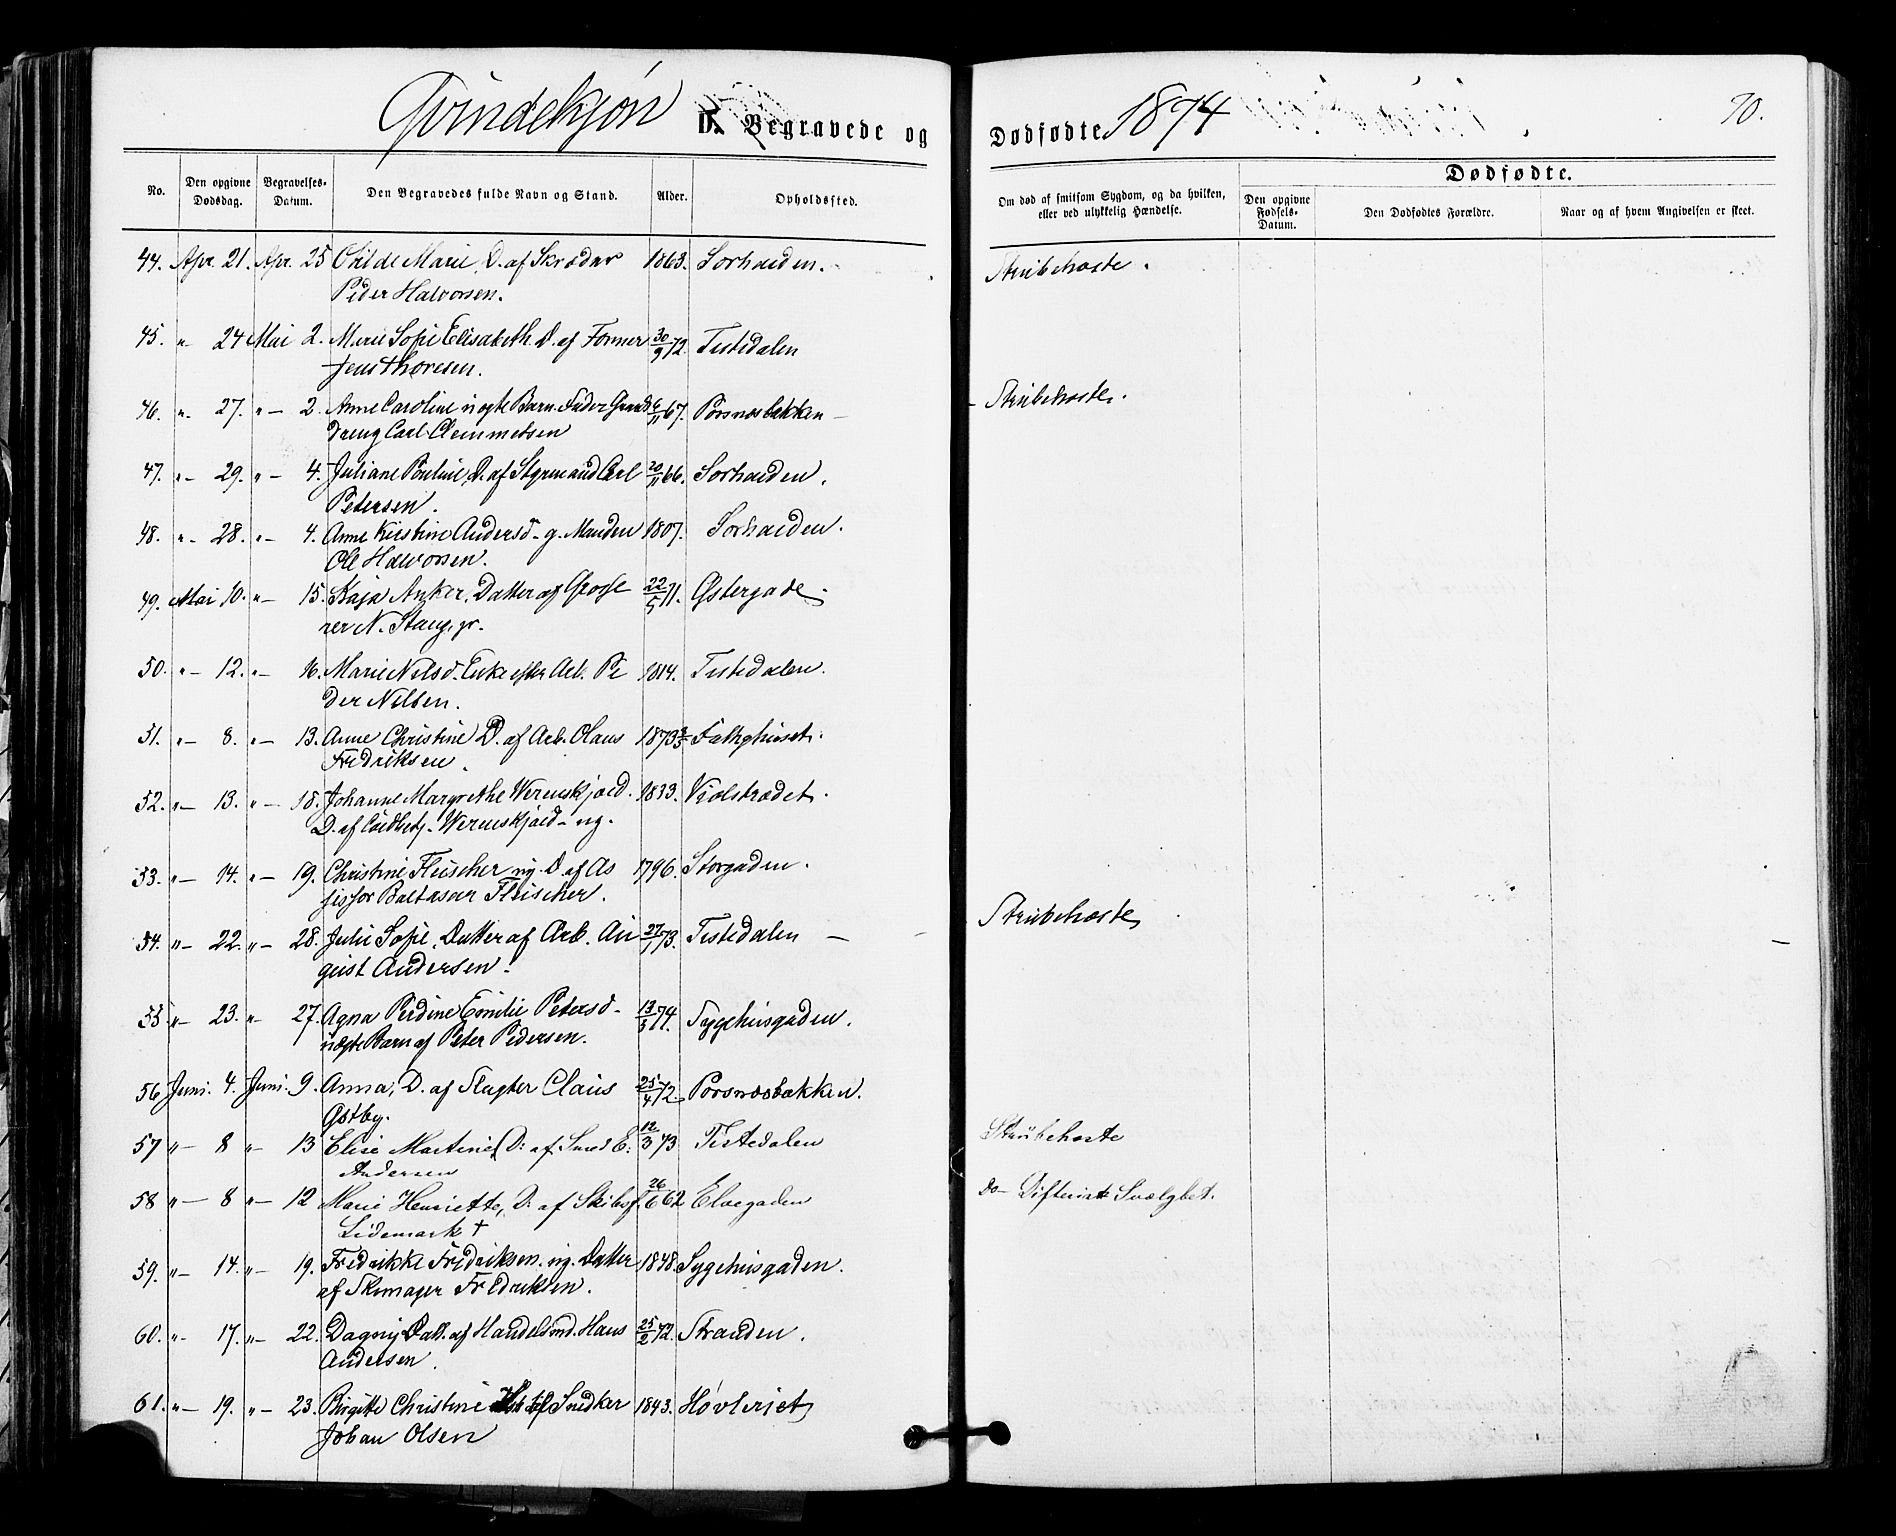 Qvindekjøn D. Begravede og Dødfødte 1874 70.
No. Den opgivne Dødsdag. Begravelses-Datum. Den Begravedes fulde Navn og Stand. Alder. Opholdssted. Om død af smitsom Sygdom, og da hvilken, eller ved ulykkelig Hændelse. Dødfødte.
Den opgivne Fødsels-Datum. Den Dødfødtes Forældre. Naar og af hvem Angivelsen er skeet.
44. Apr. 21. Apr. 25 Marie, D. af Skræder 1863. Sørhalden. Strubehoste.
Peder Halvorsen.
45. " 24 Mai 2. Marie Sofie Elisabeth D. af Former 30/9 72. Tistedalen
Jens Thoresen.
46. " 27. " 2. Anne Caroline uægte Barn. Fader Gaards 6/11 67. Porsnæsbakken Strubehoste.
dreng Carl Clemmetsen
47. " 29. " 4. Juliane Pouline, D. af Styrmand Carl 20/11 66. Sørhalden.
Petersen.
48. " 28. " 4. Anne Kirstine Andersd. g. Manden 1807. Sørhalden.
Ole Halvorsen.
49. Mai 10. " 15. Kaja Anker, Datter af Grosse 22/5 71. Østergade.
rer N. Stang, jr.
50. " 12. " 16. Marie Nilsd. Enke efter Arb. Pe 1814. Tistedalen.
der Nilsen.
51. " 8. " 13. Anne Christine D. af Arb. Olaus 1873 Fattighuset.
Fredriksen.
52. " 13. " 18. Johanne Margrethe Werenskjold. 1833. Violstrædet.
D. af Werenskjold ug.
53. " 14. " 19. Christine Fleischer ug. D. af As 1796. Storgaden.
sessor Baltasar Fleischer.
54. " 22. " 28. Julie Sofie, Datter af Arb. Au 27/1 73. Tistedalen Strubehoste
gust Andersen.
55 " 23. " 27. Agna Perdine Emilie Petersd. 13/3 74. Sygehusgaden.
uægte Barn af Peter Pedersen.
56 Juni. 4. Juni. 9. Anna, D. af Slagter Claus 25/4 72. Porsnæsbakken.
Østby.
57 " 8 " 13 Elise Martine, D: af Smed E: 12/3 73 Tistedalen Strubehoste
Andersen
58 " 8 " 12 Marie Henriette, D: af Skibsf. 26/6 62 Elvegaden do Difterisk Svælgbet.
Lidemark †
59. " 14. " 19. Fredrikke Fredriksen. ug. Datter 1848. Sygehusgaden.
af Skomager Fredriksen.
60. " 17. " 22. Dagny Datt. af Handelsmd. Hans 25/2 72. Stranden.
Andersen.
61. " 19. " 23. Birgitte Christine Snedker 1843. Høvleriet
Johan Olsen